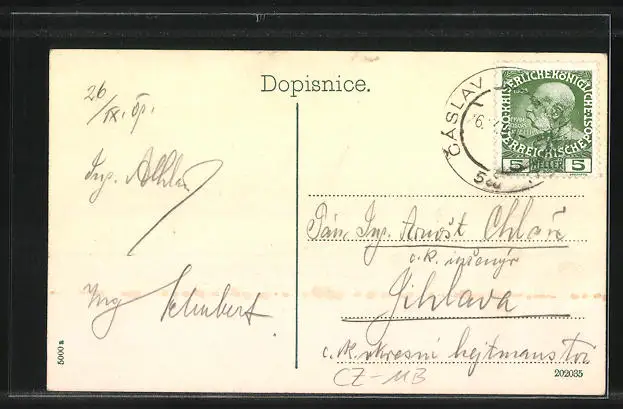 Dopisnice.
26
/IX. 09.
Ing.
Ing Schubert
5000 a
ČÁSLAV
KAISERLICHE KÖNIGLICHE ÖSTERREICHISCHE POST
5 HELLER 5
Pán Ing. Arnošt
c.k. inženýr
Jihlava
c. k. okresní hejtmanství
CZ-MB
202035